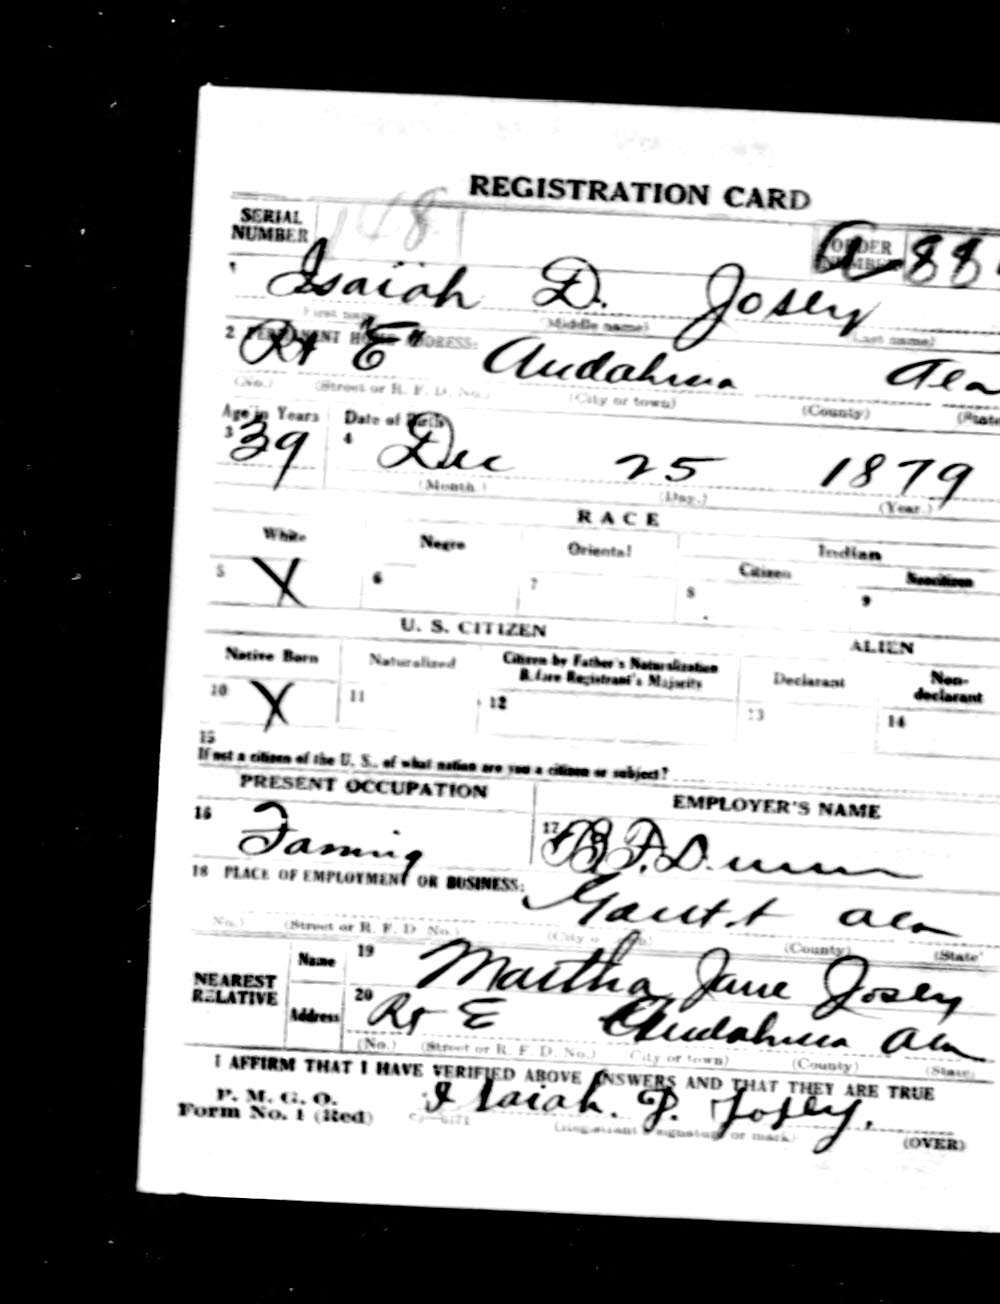 REGISTRATION CARD
SERIAL NUMBER 1681 ORDER NUMBER A 88
1 Isaiah D. Josey
(First name) (Middle name) (Last name)
2 PERMANENT HOME ADDRESS: Rt "E" Andalusia Ala
(No.) (Street or R. F. D. No.) (City or town) (County) (State
Age in Years Date of Birth
3 39 4 Dec 25 1879
(Month.) (Day.) (Year.)
RACE
White Negro Oriental Indian
Citizen Noncitizen
5 X 6 7 8 9
U. S. CITIZEN ALIEN
Native Born Naturalized Citizen by Father's Naturalization Before Registrant's Majority Declarant Non-declarant
10 X 11 12 13 14
15
If not a citizen of the U. S., of what nation are you a citizen or subject?
PRESENT OCCUPATION EMPLOYER'S NAME
16 Faming 17 B. F. Dunn
18 PLACE OF EMPLOYMENT OR BUSINESS:
Gantt Ala
No.) (Street or R. F. D. No.) (City or town) (County) (State
NEAREST RELATIVE Name 19 Martha Jane Josey
Address 20 Rt E Andalusia Ala
(No.) (Street or R. F. D. No.) (City or town) (County) (State)
I AFFIRM THAT I HAVE VERIFIED ABOVE ANSWERS AND THAT THEY ARE TRUE
P. M. G. O.
Form No. 1 (Red) Isaiah. D. Josey.
(Registrant's signature or mark) (OVER)